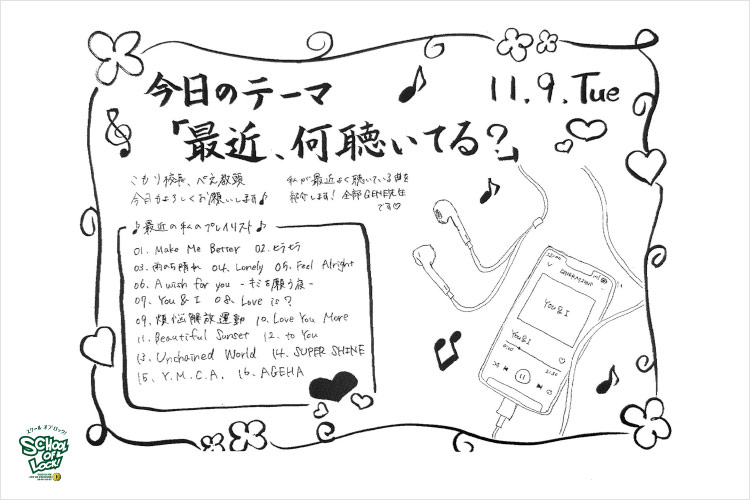 今日のテーマ
11.9.Tue
「最近、何聴いてる?」
こもり校長、ぺえ教頭
今日もよろしくお願いします♪
私が最近よく聴いている曲を
紹介します!全部GENE先生
です♡
♪最近の私のプレイリスト♪
01. Make Me Better 02. ヒラヒラ
03. 雨のち晴れ 04. Lonely 05. Feel Alright
06. A wish for you -キミを願う夜-
07. You & I 08. Love is?
09. 煩悩解放運動 10. Love You More
11. Beautiful Sunset 12. to You
13. Unchained World 14. SUPER SHINE
15. Y.M.C.A. 16. AGEHA
GENERATIONS
You & I
You & I
0:00
スクール オブ ロック!
SCHOOL
OF
LOCK!